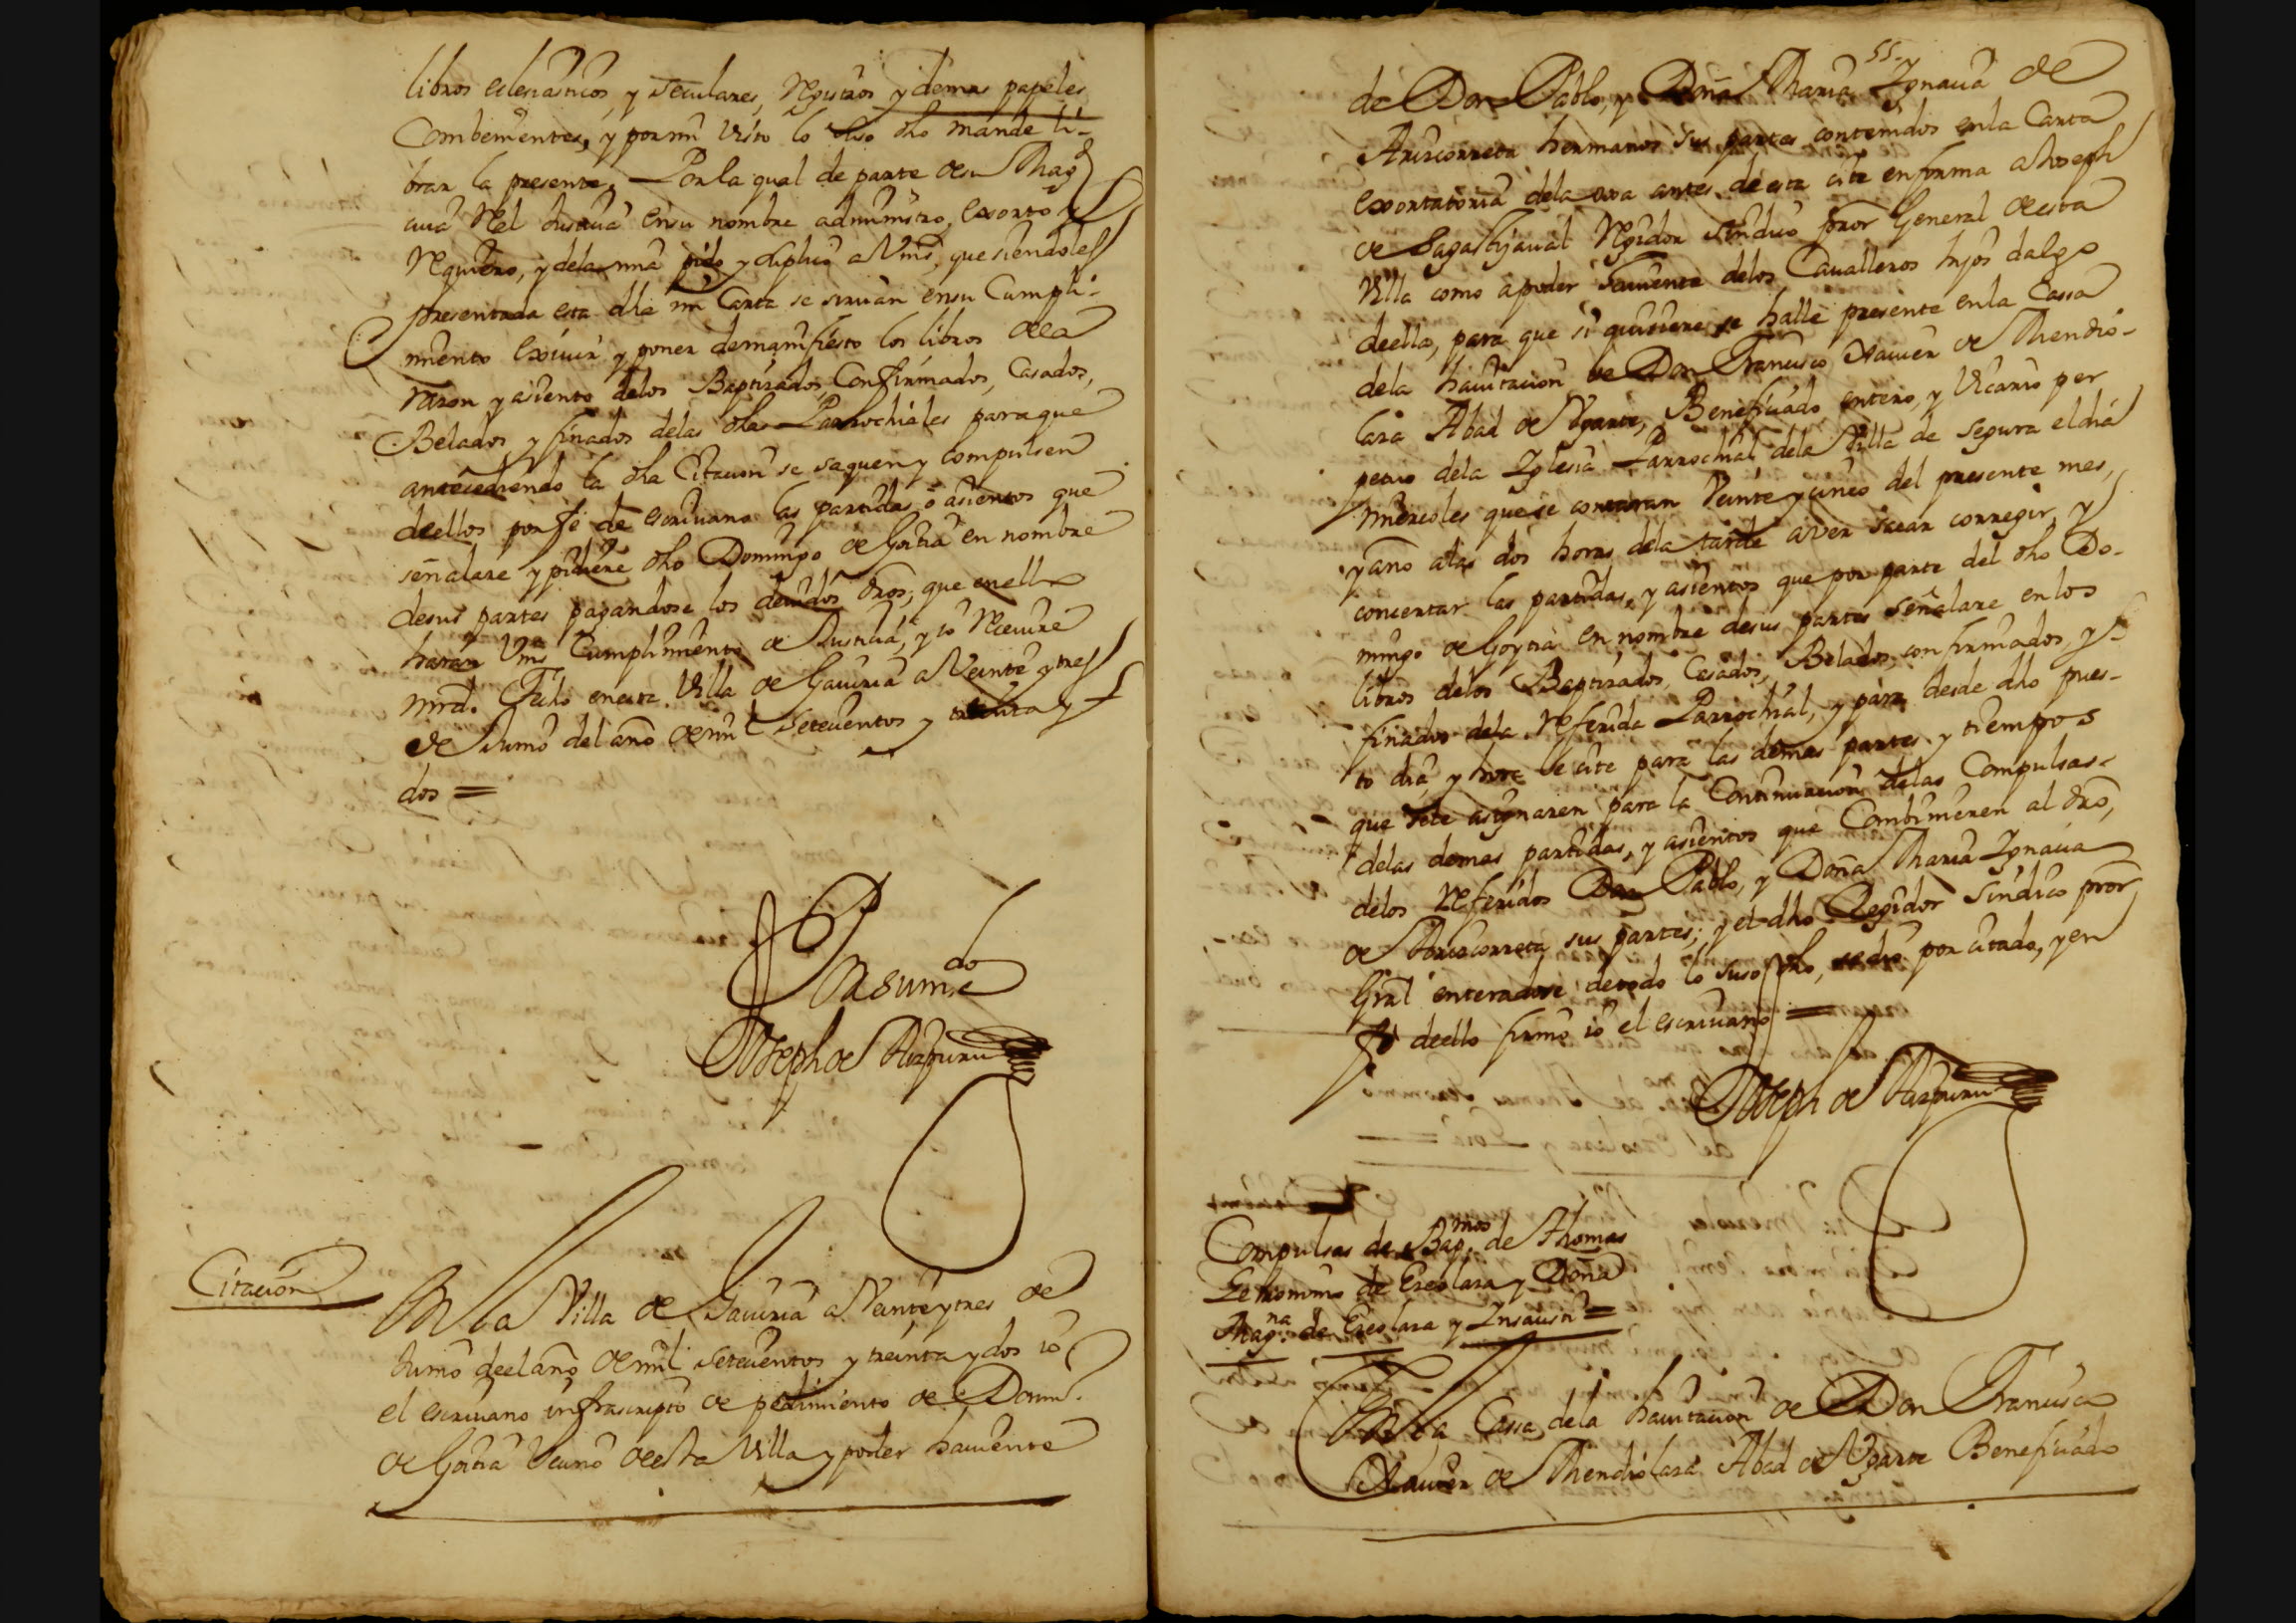 libros eclesiasticos, y seculares, Rexistros y demas papeles
Combenientes, y por mi visto lo suso dho mande li-
brar la presente, Por la qual de parte de su Mag.d
cuia Rel Justicia en su nombre administro, exorto y
Requiero, y de la mia pido y suplico a Vms, que siendoles
presentada esta dha mi Carta se sirvan en su Cumpli-
miento exivir y poner de manifiesto los libros de la
razon y asiento de los Baptizados, Confirmados, Casados,
Belados y finados de las dhas Parrochiales para que
antecediendo la dha Citacion se saquen y compulsen
de ellos por fe de escrivano las partidas, o asientos que
señalare y pidiere dho Domingo de Goitia en nombre
de sus partes pagandose los devidos dros; que en ello
haran Vms Cumplimiento de Justicia, y io Recivire
mrd. Fecho en esta Villa de Gaviria a Veinte y tres
de Junio del año de mil setecientos y treinta y
dos =
Joseph de Aizpuru
Citacion
En la Villa de Gaviria a Veinte y tres de
Junio de el año de mil setecientos y treinta y dos io
el escrivano infrascripto de pedimiento de Domi.
de Goitia Vecino de esta Villa y poder haviente
55
de Don Pablo, y Doña Maria Ignacia de
Ariscorreta hermanos sus partes contenidos en la Carta
exortatoria de la oxa antes de esta cite en forma a Joseph
de Sagastizaval Regidor sindico pror General de esta
Villa como a poder haviente de los Cavalleros hijos dalgo
de ella, para que si quisiere se halle presente en la Cassa
de la havitacion de Don Francisco Xavier de Mendio-
laza Abad de Ugarte, Beneficiado entero, y Vicario per
petuo de la Iglesia Parrochial de la Villa de Segura el dia
miercoles que se contaran Veinte y cinco del presente mes,
y año a las dos horas de la tarde a ver sacar corregir, y
concertar las partidas, y asientos que por parte del dho Do-
mingo de Goytia en nombre de sus partes señalare en los
libros de los Baptizados, Casados, Belados, confirmados, y
finados de la Referida Parrochial, y para desde dho pues-
to dia, y hora le cite para las demas partes y tiempos
que se le asignaren para la Continuacion de las Compulsas
de las demas partidas, y asientos que Combinieren al dro,
de los referidos Don Pablo, y Doña Maria Ignacia
de Ariscorreta sus partes; y el dho Regidor sindico pror
Gral enteradose de todo lo suso dho, se dio por citado, y en
fe de ello firmo io el escrivano =
Joseph de Aizpuru
Compulsas de Bap.mos de Thomas
Geronimo de Ereolaza y Doña
Mag.na de Ereolaza y Insausti =
En la Cassa de la havitacion de Don Francisco
Xavier de Mendiolaza Abad de Ugarte Beneficiado